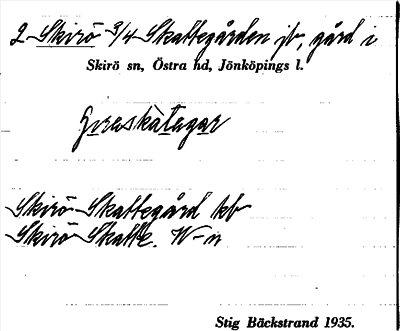 2 Skirö 3/4 Skattegården jb, gård i
Skirö sn, Östra hd, Jönköpings l.
Skirö Skattegård kb
Skirö Skatte. W-n
Stig Bäckstrand 1935.